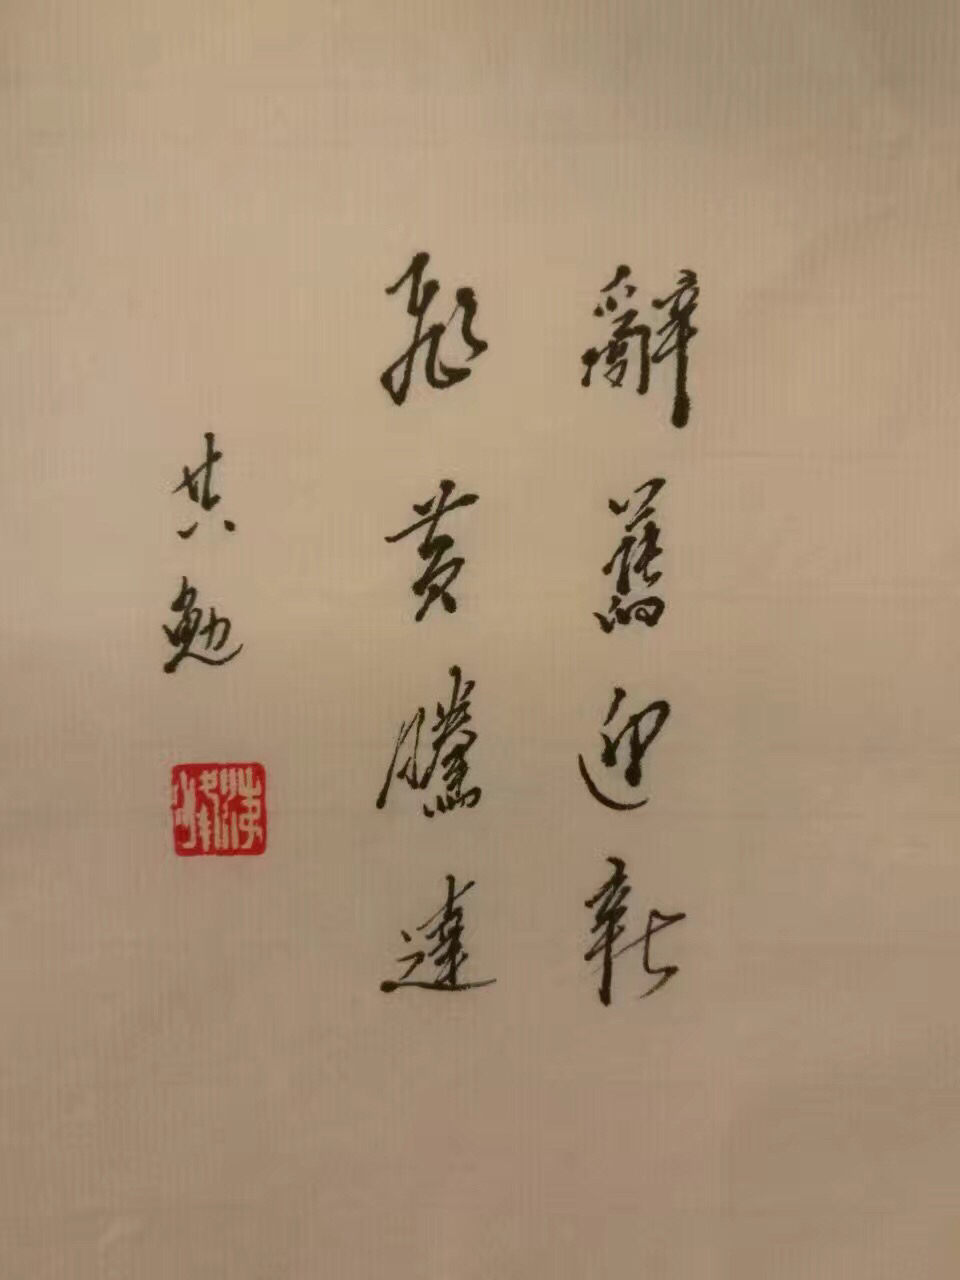 辭舊迎新
飛黃騰達
共勉